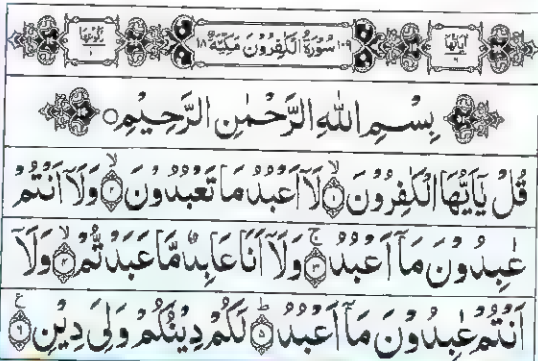 اٰيَاتُهَا ٦ ١٠٩ سُوْرَةُ الْكٰفِرُوْنَ مَكِّيَّةٌ ١٨ رُكُوْعُهَا ١
بِسْمِ اللّٰهِ الرَّحْمٰنِ الرَّحِيْمِ
قُلْ يٰٓاَيُّهَا الْكٰفِرُوْنَ ۙ‏﴿۱﴾ لَاۤ اَعْبُدُ مَا تَعْبُدُوْنَ ۙ‏﴿۲﴾ وَلَاۤ اَنْتُمْ
عٰبِدُوْنَ مَاۤ اَعْبُدُ ۚ‏﴿۳﴾ وَلَاۤ اَنَا عَابِدٌ مَّا عَبَدْتُّمْ ۙ‏﴿۴﴾ وَلَاۤ
اَنْتُمْ عٰبِدُوْنَ مَاۤ اَعْبُدُ ؕ‏﴿۵﴾ لَكُمْ دِيْنُكُمْ وَلِىَ دِيْنِ ﴿۶﴾ ع